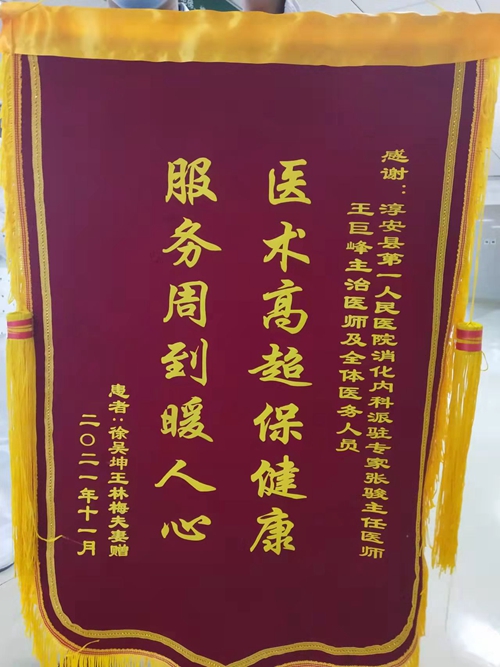 感谢：淳安县第一人民医院消化内科派驻专家张骏主任医师
王巨峰主治医师及全体医务人员
医术高超保健康
服务周到暖人心
患者：徐吴坤王林梅夫妻赠
二〇二一年十一月